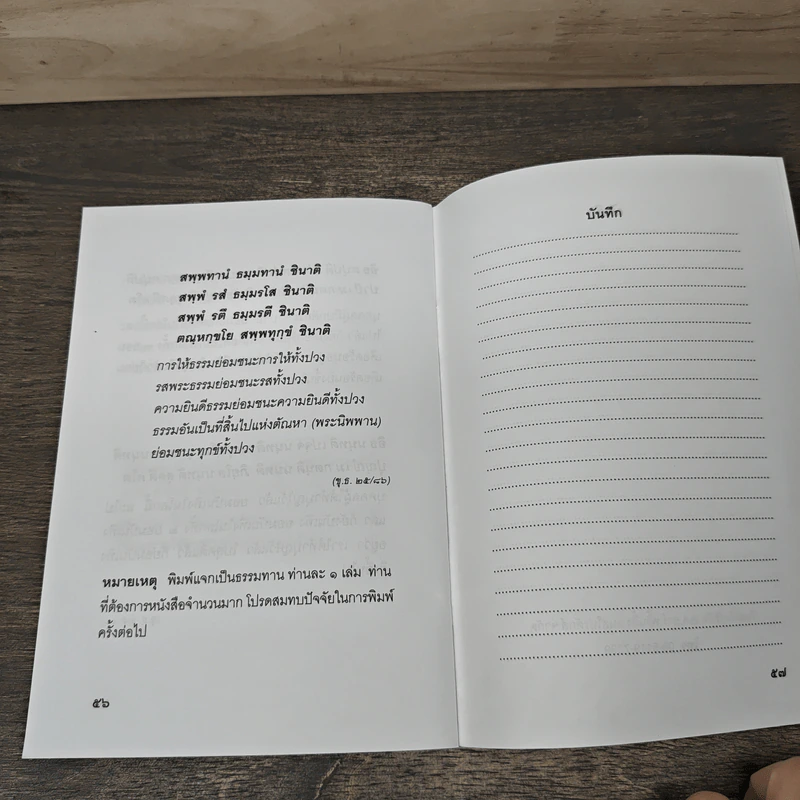 สพฺพทานํ ธมฺมทานํ ชินาติ
สพฺพํ รสํ ธมฺมรโส ชินาติ
สพฺพํ รตึ ธมฺมรตี ชินาติ
ตณฺหกฺขโย สพฺพทุกฺขํ ชินาติ
การให้ธรรมย่อมชนะการให้ทั้งปวง
รสพระธรรมย่อมชนะรสทั้งปวง
ความยินดีธรรมย่อมชนะความยินดีทั้งปวง
ธรรมอันเป็นที่สิ้นไปแห่งตัณหา (พระนิพพาน)
ย่อมชนะทุกข์ทั้งปวง
(ขุ.ธ. ๒๕/๘๖)
หมายเหตุ พิมพ์แจกเป็นธรรมทาน ท่านละ ๑ เล่ม ท่าน
ที่ต้องการหนังสือจำนวนมาก โปรดสมทบปัจจัยในการพิมพ์
ครั้งต่อไป
๕๖
บันทึก
๕๗